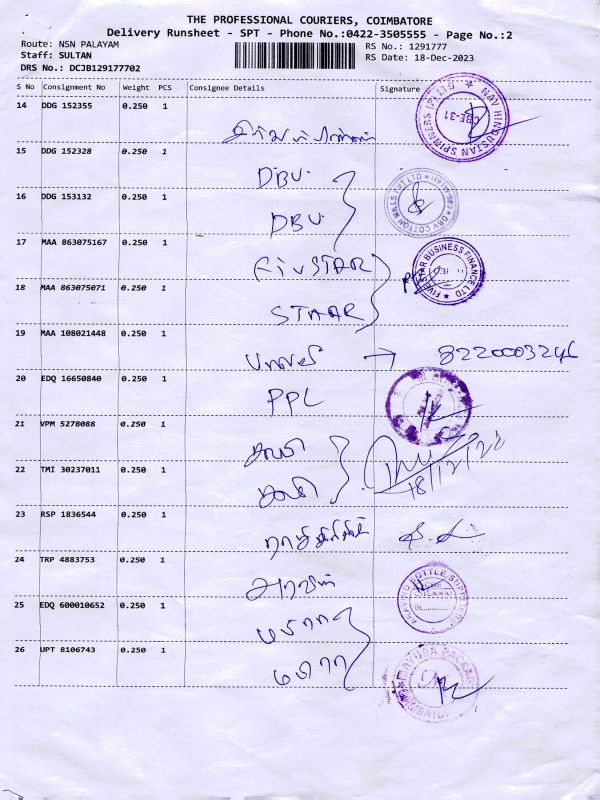 THE PROFESSIONAL COURIERS, COIMBATORE
Delivery Runsheet - SPT - Phone No.:0422-3505555 - Page No.:2
Route: NSN PALAYAM
RS No.: 1291777
Staff: SULTAN
RS Date: 18-Dec-2023
DRS No.: DCJB129177702
S No Consignment No Weight PCS Consignee Details Signature
14 DDG 152355 0.250 1
NAV HINDUSTAN SPINNERS (P) LTD CBE-31
15 DDG 152328 0.250 1
DBV
16 DDG 153132 0.250 1
DBV
DBV COTTON MILLS PVT LTD
17 MAA 863075167 0.250 1
FivSTAR
FIVE STAR BUSINESS FINANCE LTD
18 MAA 863075071 0.250 1
STAAR
19 MAA 108021448 0.250 1
→ 8220003246
20 EDQ 16650840 0.250 1
PPL
21 VPM 5278088 0.250 1
22 TMI 30237011 0.250 1
18/12/23
23 RSP 1836544 0.250 1
24 TRP 4883753 0.250 1
25 EDQ 600010652 0.250 1
மயூரா
26 UPT 8106743 0.250 1
மயூரா